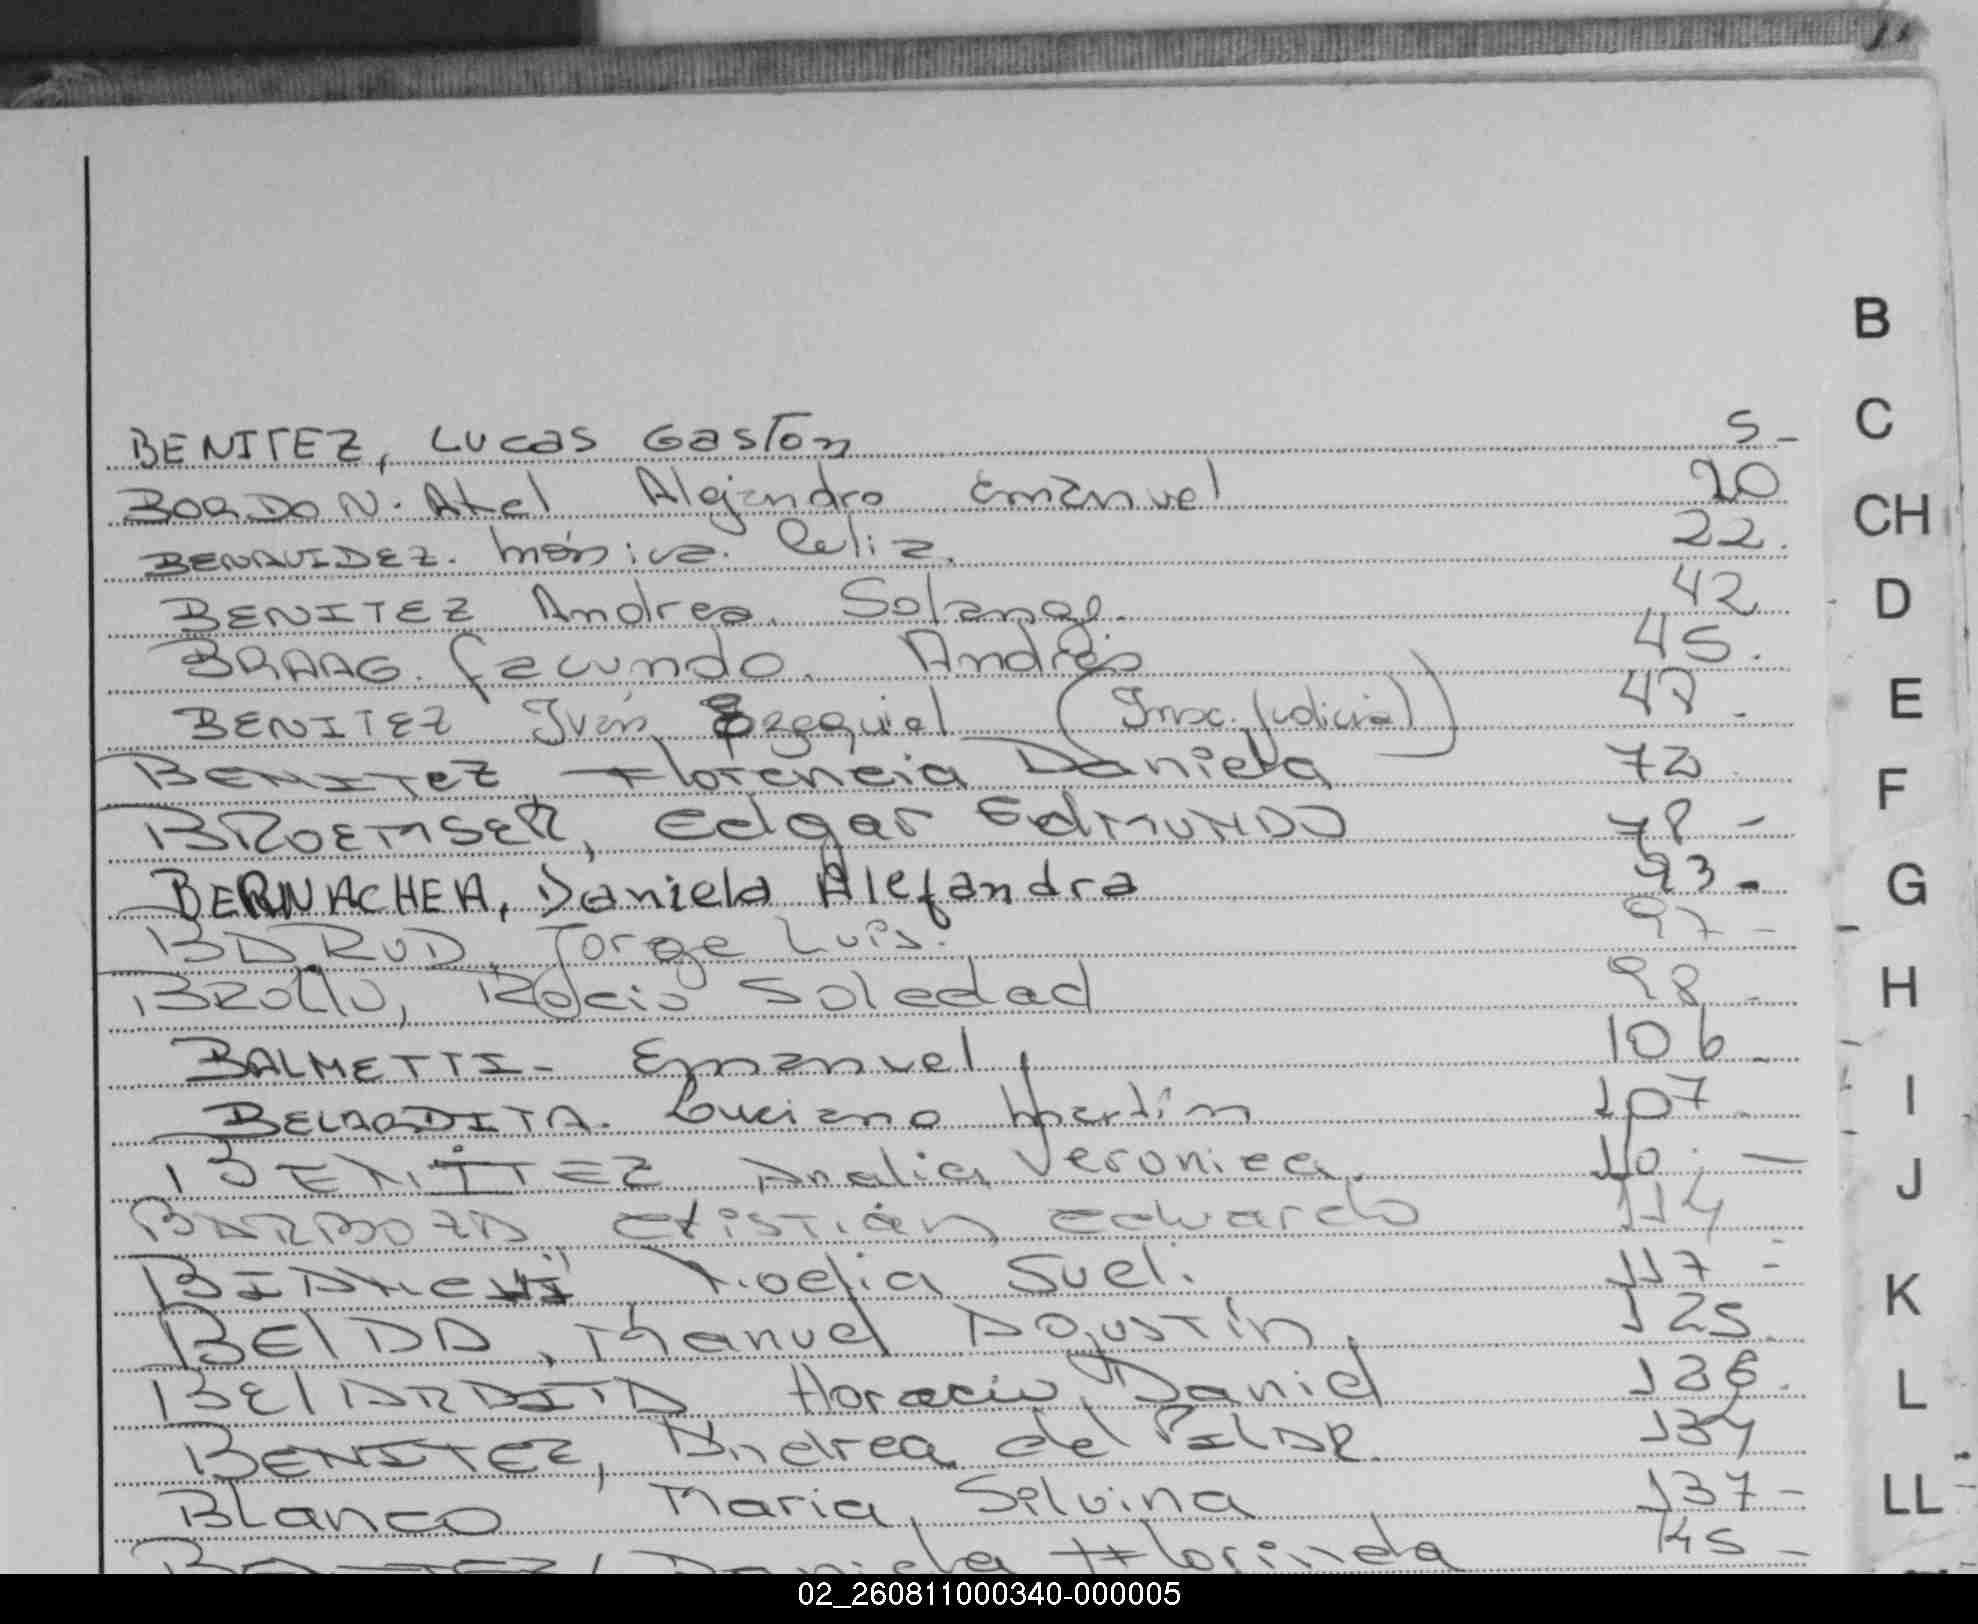 B
C
CH
D
E
F
G
H
I
J
K
L
LL
BENITEZ, Lucas Gaston 5-
BORDON. Axel Alejandro Emanuel 20
BENAVIDEZ. Mónica. Celia. 22.
BENITEZ Andrea. Solange. 42
BRAAG. Facundo. Andrés 45.
BENITEZ Iván Ezequiel (Insc. Judicial)
BENITEZ Florencia Daniela 72
BROEMSER, Edgar EdMUNDO 78 -
BERNACHEA, Daniela Alejandra 93-
BDRUD Jorge Luis. 97-
BROllo, Rocio Soledad 98 -
BALMETTI- Emanuel 106-
BELARDITA. Luciano Martín 107
BENITEZ Analia Veronica. 110. -
BARBOZA Cristian Eduardo 114
Noelia Sueli 117 -
BElDA, Manuel Agustín 125.
BElARDITA Horacio Daniel
BENITEZ, Andrea del PilAR 134
Blanco Maria Silvina 137-
Daniela Florinda 145 -
02_260811000340-000005